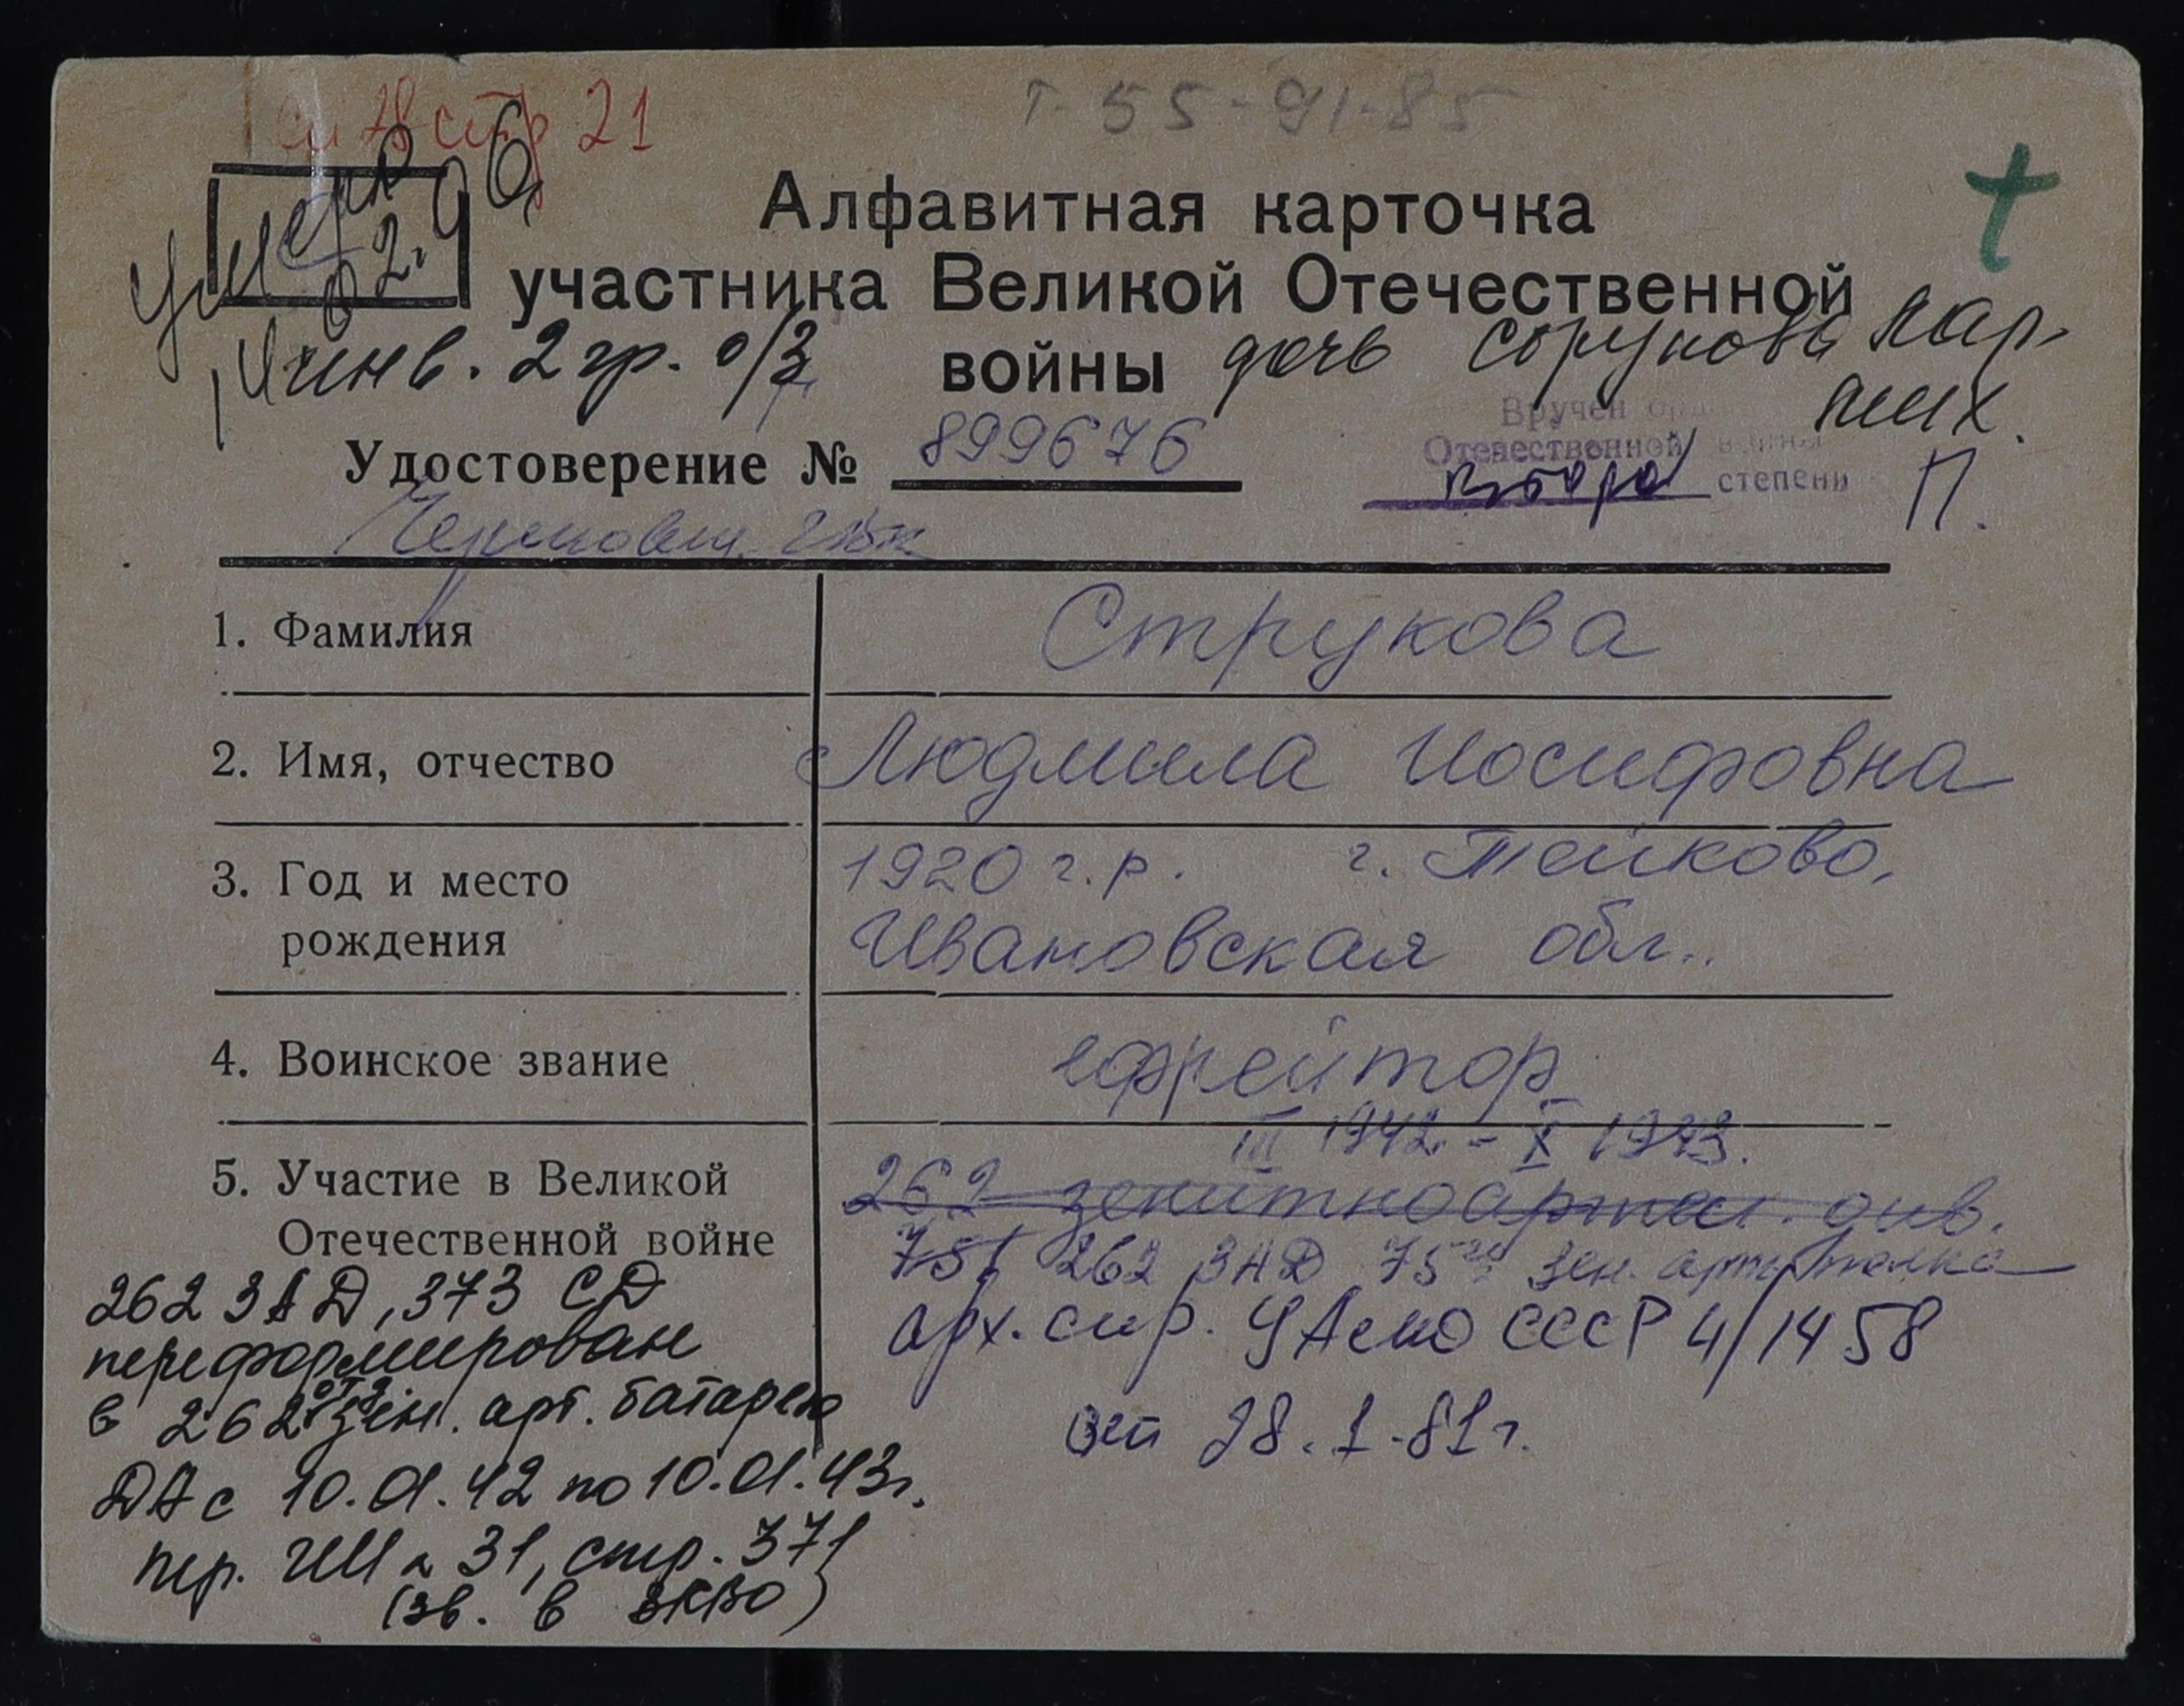 стр 21
Т-55-91-85
Алфавитная карточка
участника Великой Отечественной
войны
умерла
02.96
инв. 2 гр. о/з
дочь
Вручен
Отечественной войны
второй степени
П.
Удостоверение № 899676
1. Фамилия Струкова
2. Имя, отчество Людмила Иосифовна
3. Год и место 1920 г.р. г. Тейково,
рождения Ивановская обл..
4. Воинское звание ефрейтор
III 1942 - X 1943.
5. Участие в Великой 262 зенитно артил. див.
Отечественной войне 751 262 ЗАД 75го зен. арт. полка
262 ЗАД, 373 СД
арх. спр. ЦАСМО СССР 4/1458
переформирован
в 262 отд. зен. арт. батарею
от 28.1.81 г.
ДА с 10.01.42 по 10.01.43г.
пер. ГШ № 31, стр. 371